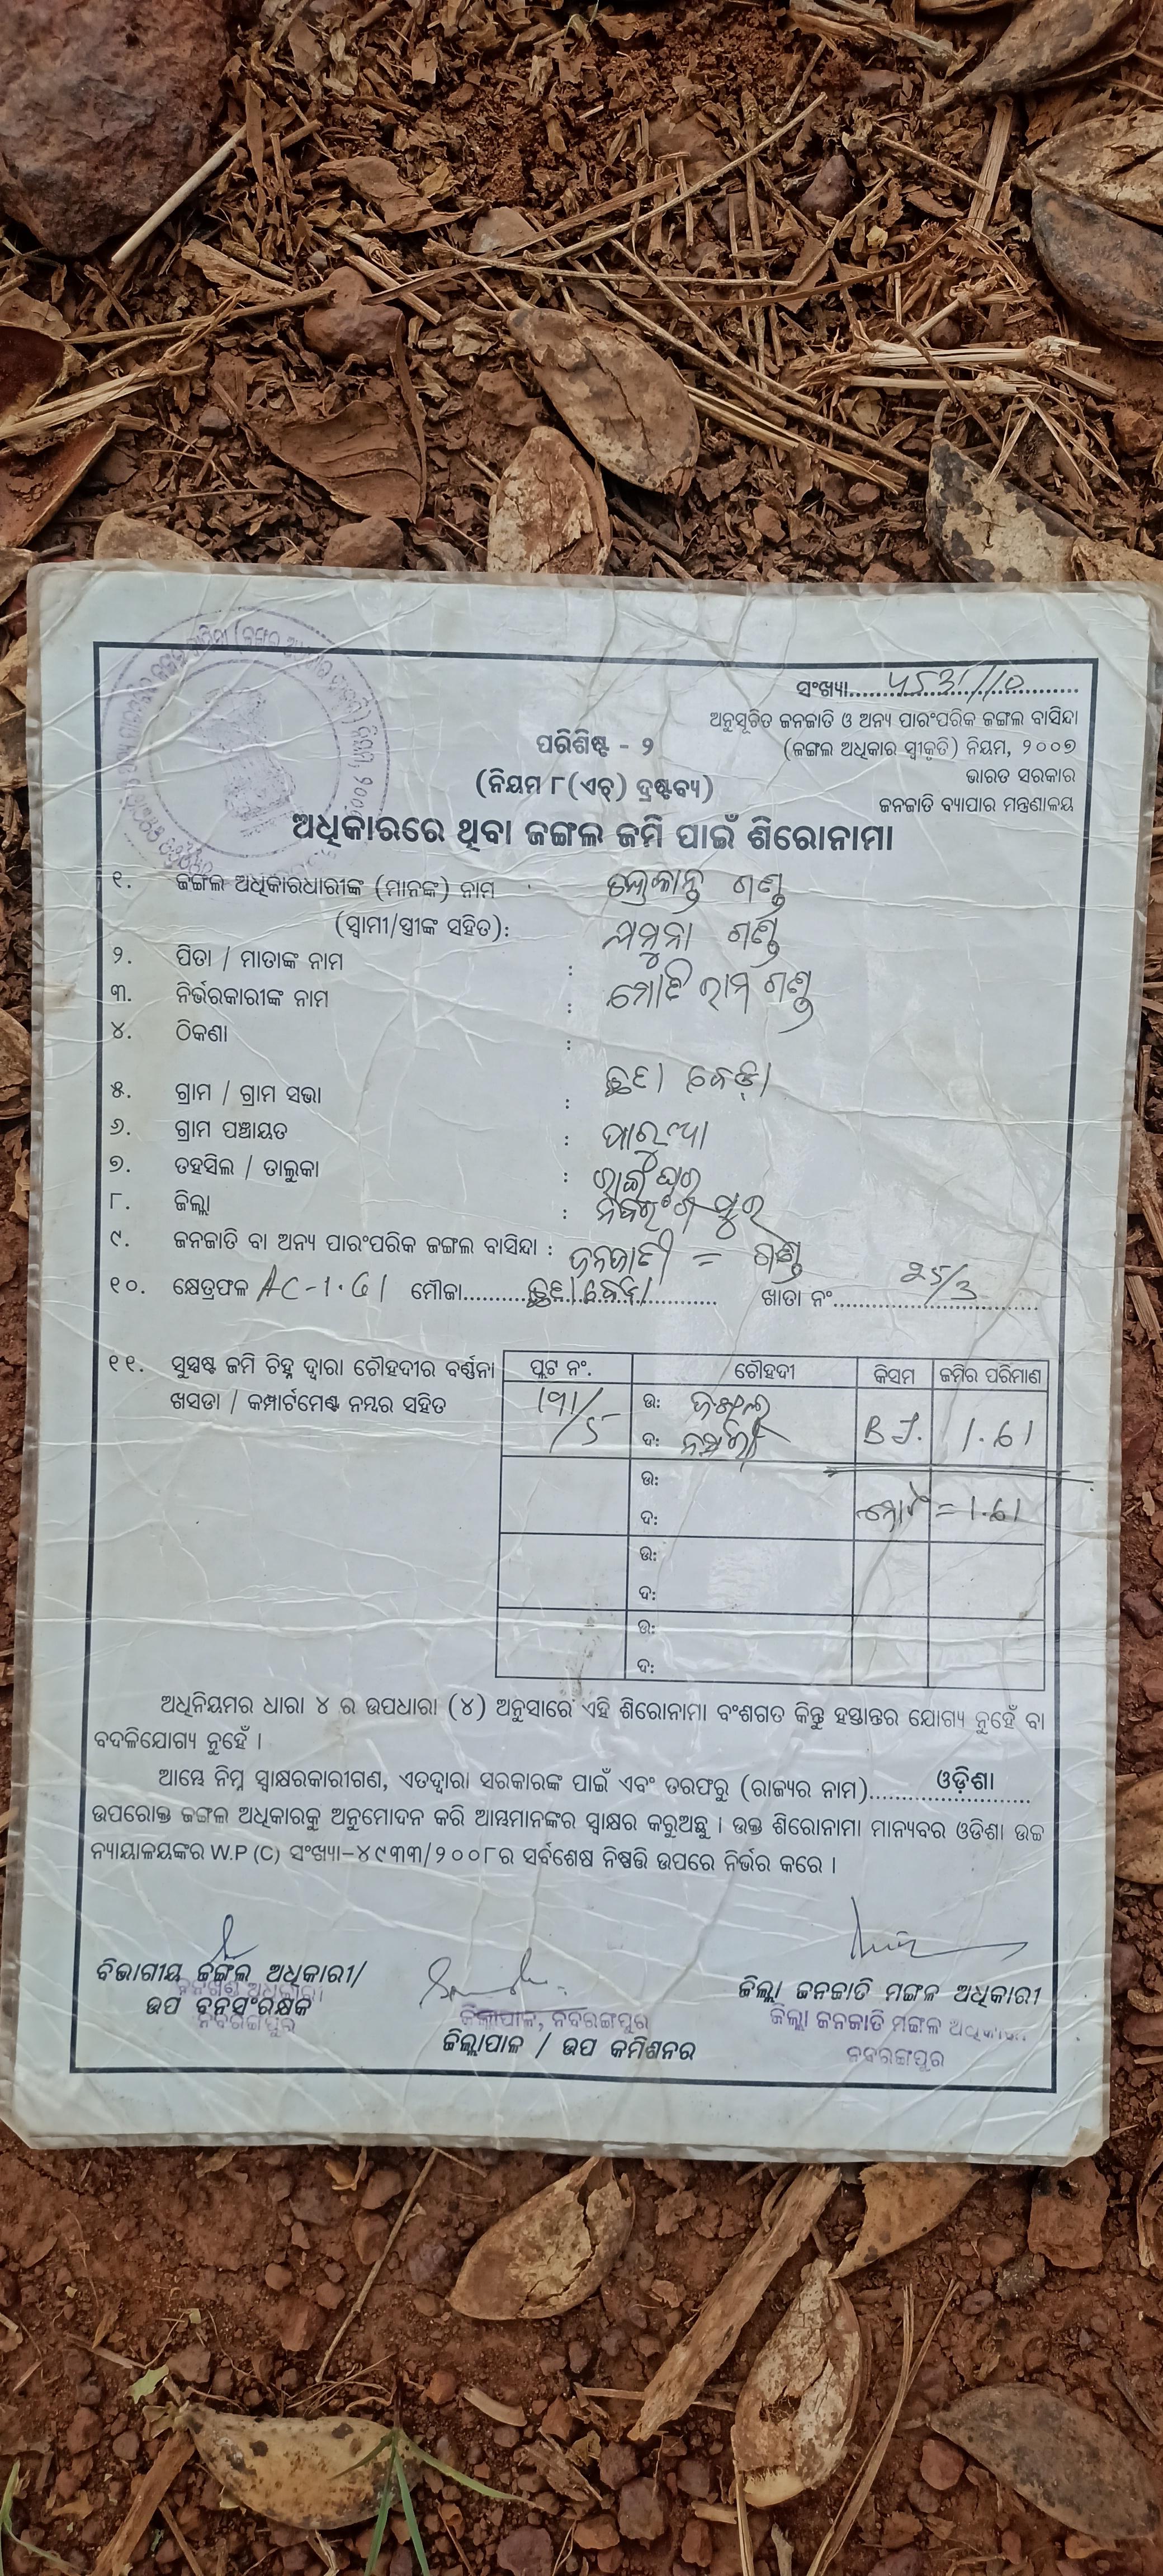 ସଂଖ୍ୟା......4531/10......
ଅନୁସୂଚିତ ଜନଜାତି ଓ ଅନ୍ୟ ପାରଂପରିକ ଜଙ୍ଗଲ ବାସିନ୍ଦା
ପରିଶିଷ୍ଟ - ୨
(ଜଙ୍ଗଲ ଅଧିକାର ସ୍ୱୀକୃତି) ନିୟମ, ୨୦୦୭
(ନିୟମ ୮(ଏଚ୍) ଦ୍ରଷ୍ଟବ୍ୟ)
ଭାରତ ସରକାର
ଜନଜାତି ବ୍ୟାପାର ମନ୍ତ୍ରଣାଳୟ
ଅଧିକାରରେ ଥିବା ଜଙ୍ଗଲ ଜମି ପାଇଁ ଶିରୋନାମା
୧. ଜଙ୍ଗଲ ଅଧିକାରଧାରୀଙ୍କ (ମାନଙ୍କ) ନାମ ଗଣ୍ଡ
(ସ୍ୱାମୀ/ସ୍ତ୍ରୀଙ୍କ ସହିତ): ଗଣ୍ଡ
୨. ପିତା / ମାତାଙ୍କ ନାମ : ରାମ ଗଣ୍ଡ
୩. ନିର୍ଭରକାରୀଙ୍କ ନାମ :
୪. ଠିକଣା :
୫. ଗ୍ରାମ / ଗ୍ରାମ ସଭା :
୬. ଗ୍ରାମ ପଞ୍ଚାୟତ :
୭. ତହସିଲ / ତାଲୁକା : ରାଇଘର
୮. ଜିଲ୍ଲା : ନବରଂଗପୁର
୯. ଜନଜାତି ବା ଅନ୍ୟ ପାରଂପରିକ ଜଙ୍ଗଲ ବାସିନ୍ଦା : ଜନଜାତୀ = ଗଣ୍ଡ
୧୦. କ୍ଷେତ୍ରଫଳ AC-1.61 ମୌଜା............ ଖାତା ନଂ......25/3......
୧୧. ସୁସ୍ପଷ୍ଟ ଜମି ଚିହ୍ନ ଦ୍ୱାରା ଚୌହଦୀର ବର୍ଣ୍ଣନା
ଖସଡା / କମ୍ପାର୍ଟମେଣ୍ଟ ନମ୍ବର ସହିତ
ପ୍ଲଟ ନଂ. ଚୌହଦୀ କିସମ ଜମିର ପରିମାଣ
ଉ: ଜଙ୍ଗଲ
ଦ: B J. 1.61
ଉ:
ଦ: ମୋଟ = 1.61
ଉ:
ଦ:
ଉ:
ଦ:
ଅଧିନିୟମର ଧାରା ୪ ର ଉପଧାରା (୪) ଅନୁସାରେ ଏହି ଶିରୋନାମା ବଂଶଗତ କିନ୍ତୁ ହସ୍ତାନ୍ତର ଯୋଗ୍ୟ ନୁହେଁ ବା
ବଦଳିଯୋଗ୍ୟ ନୁହେଁ ।
ଆମ୍ଭେ ନିମ୍ନ ସ୍ୱାକ୍ଷରକାରୀଗଣ, ଏତଦ୍ୱାରା ସରକାରଙ୍କ ପାଇଁ ଏବଂ ତରଫରୁ (ରାଜ୍ୟର ନାମ)......ଓଡ଼ିଶା......
ଉପରୋକ୍ତ ଜଙ୍ଗଲ ଅଧିକାରକୁ ଅନୁମୋଦନ କରି ଆମ୍ଭମାନଙ୍କର ସ୍ୱାକ୍ଷର କରୁଅଛୁ । ଉକ୍ତ ଶିରୋନାମା ମାନ୍ୟବର ଓଡିଶା ଉଚ୍ଚ
ନ୍ୟାୟାଳୟଙ୍କର W.P (C) ସଂଖ୍ୟା-୪୯୩୩/୨୦୦୮ର ସର୍ବଶେଷ ନିଷ୍ପତ୍ତି ଉପରେ ନିର୍ଭର କରେ ।
ବିଭାଗୀୟ ଜଙ୍ଗଲ ଅଧିକାରୀ/
ଉପ ବନସଂରକ୍ଷକ
ନବରଙ୍ଗପୁର
ଜିଲ୍ଲାପାଳ, ନବରଙ୍ଗପୁର
ଜିଲ୍ଲାପାଳ / ଉପ କମିଶନର
ଜିଲ୍ଲା ଜନଜାତି ମଙ୍ଗଳ ଅଧିକାରୀ
ଜିଲ୍ଲା ଜନଜାତି ମଙ୍ଗଳ ଅଧିକାରୀ
ନବରଙ୍ଗପୁର